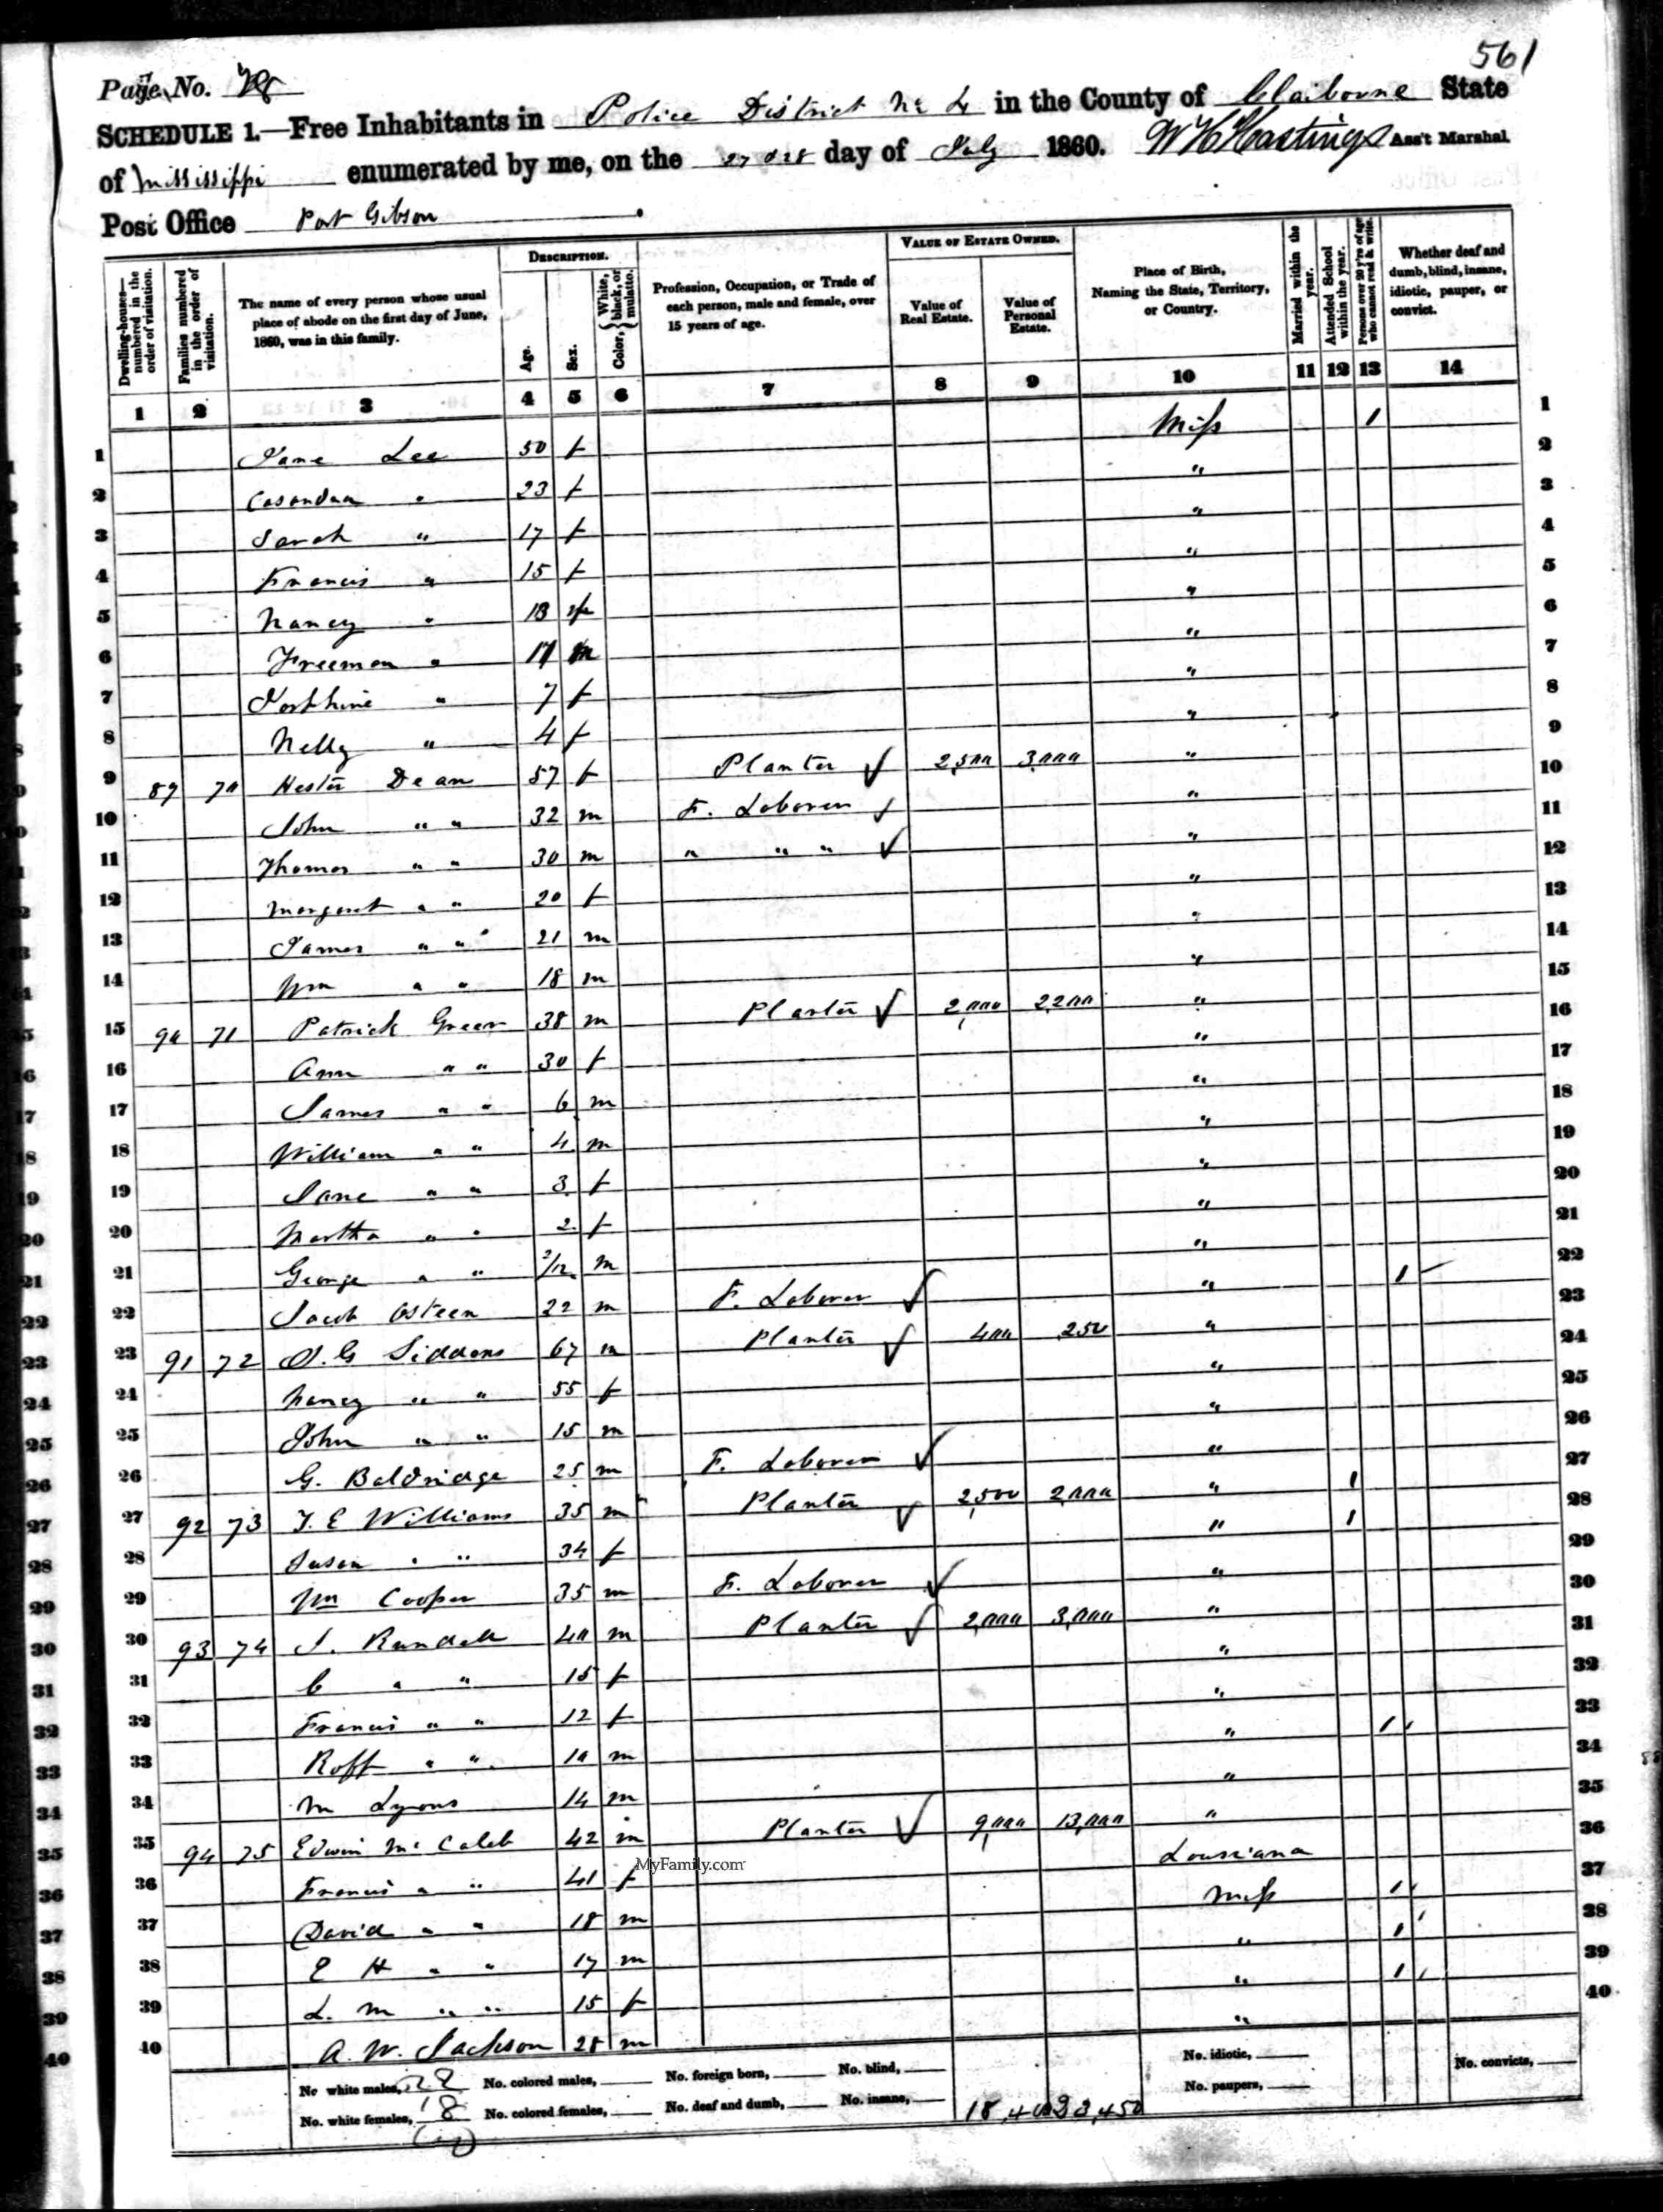 561
Page No.
SCHEDULE 1.—Free Inhabitants in Police District No 4 in the County of Claiborne State
of Mississippi enumerated by me, on the 27 & 28 day of July 1860. W H Hastings Ass't Marshal
Post Office Port Gibson
DESCRIPTION. VALUE OF ESTATE OWNED.
Dwelling-houses—numbered in the order of visitation. Families numbered in the order of visitation. The name of every person whose usual place of abode on the first day of June, 1860, was in this family. Age. Sex. Color, {White, black, or mulatto. Profession, Occupation, or Trade of each person, male and female, over 15 years of age. Value of Real Estate. Value of Personal Estate. Place of Birth, Naming the State, Territory, or Country. Married within the year. Attended School within the year. Persons over 20 y'rs of age who cannot read & write. Whether deaf and dumb, blind, insane, idiotic, pauper, or convict.
1 2 3 4 5 6 7 8 9 10 11 12 13 14
1 Jane Lee 50 f Miss 1 1
2 Casandra " 23 f " 2
3 Sarah " 17 f " 3
4 Francis " 15 f " 4
5 Nancy " 13 f " 5
6 Freeman " 11 m " 6
7 Josphine " 7 f " 7
8 Nelly " 4 f " 8
9 89 70 Hester Dean 57 f Planter 2,500 3,000 " 9
10 John " " 32 m F. Laborer " 10
11 Thomas " " 30 m " " " " 11
12 Margaret " " 20 f " 12
13 James " " 21 m " 13
14 Wm " " 18 m " 14
15 90 71 Patrick Green 38 m Planter 2,000 2200 " 15
16 Ann " " 30 f " 16
17 James " " 6 m " 17
18 William " " 4 m " 18
19 Jane " " 3 f " 19
20 Martha " " 2 f " 20
21 George " " 2/12 m " 21
22 Jacob Osteen 22 m F. Laborer " 1 22
23 91 72 G Siddons 67 m Planter 400 250 " 23
24 Nancy " " 55 f " 24
25 John " " 15 m " 25
26 G. Baldridge 25 m F. Laborer " 26
27 92 73 T. E Williams 35 m Planter 2,500 2,000 " 1 27
28 Susan " " 34 f " 1 28
29 Wm Cooper 35 m F. Laborer " 29
30 93 74 J. Rundell 40 m Planter 2,000 3,000 " 30
31 C " " 15 f " 31
32 Francis " " 12 f " 32
33 Roff " " 10 m " 1 33
34 M Lyons 14 m " 34
35 94 75 Edwin Mc Caleb 42 m Planter 9,000 13,000 " 35
36 Francis " " 41 f Louisiana 36
37 David " " 18 m Miss 1 37
38 E H " " 17 m " 1 38
39 L. M " " 15 f " 1 39
40 A. W. Jackson 28 m " 40
MyFamily.com
No white males, 22 No. colored males, No. foreign born, No. blind, No. idiotic, No. convicts,
No. white females, 18 No. colored females, No. deaf and dumb, No. insane, 18,400 23,450 No. paupers,